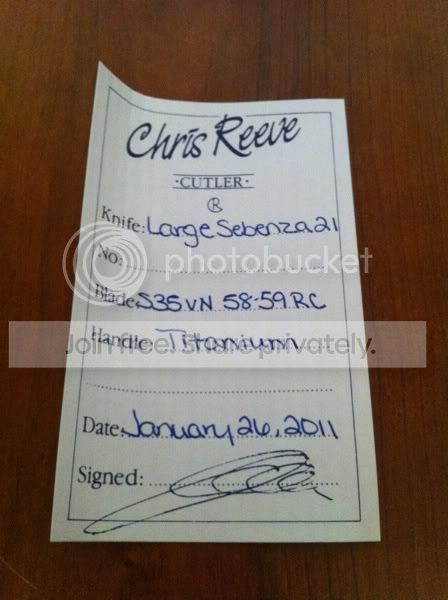 Chris Reeve
·CUTLER·
®
Knife: Large Sebenza 21
No:
photobucket
Blade: S35VN 58-59 RC
Handle: Titanium
Join free. Share privately.
Date: January 26, 2011
Signed: